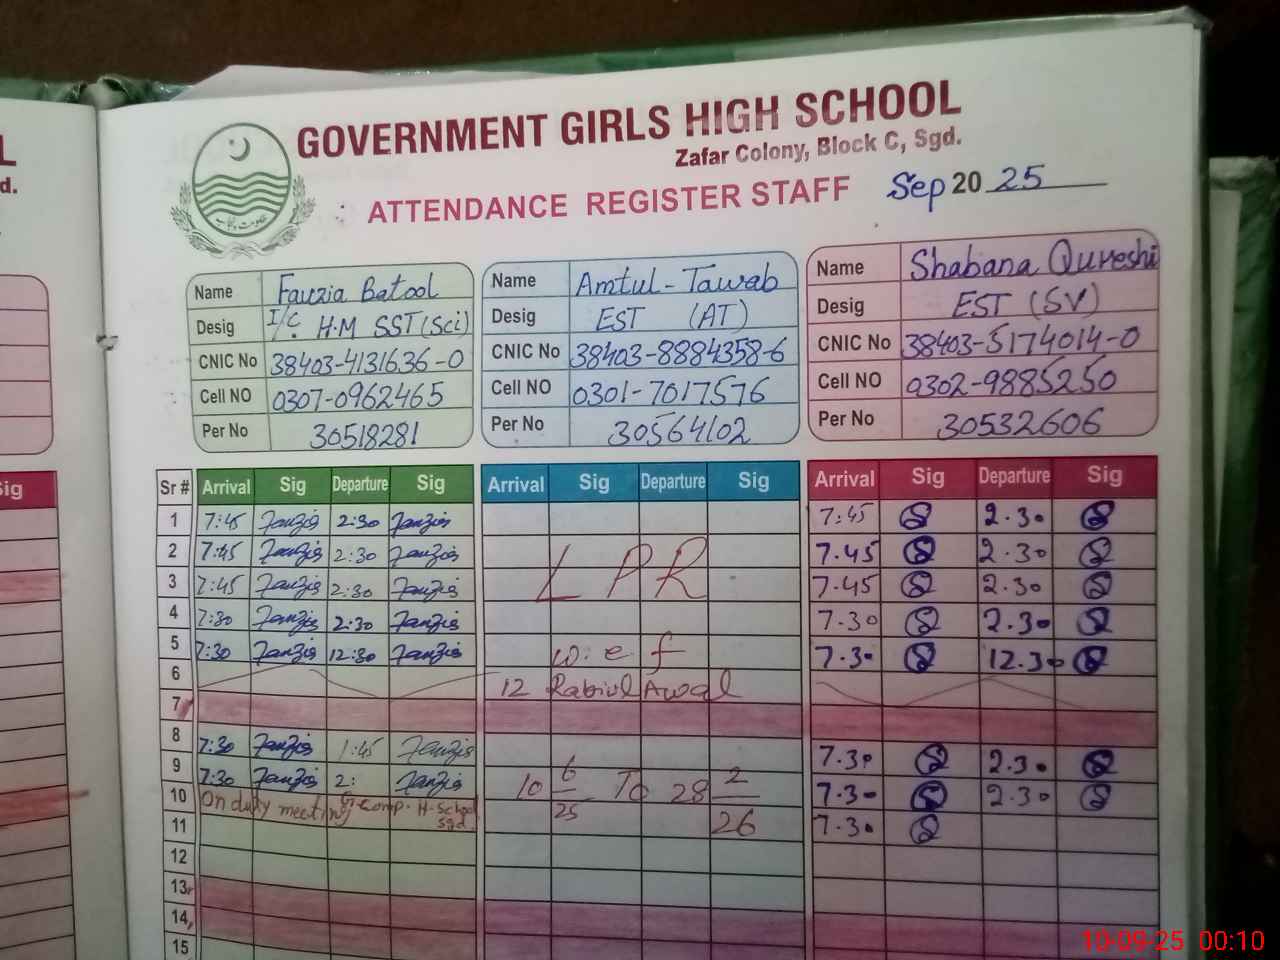 L
d.
GOVERNMENT GIRLS HIGH SCHOOL
Zafar Colony, Block C, Sgd.
ATTENDANCE REGISTER STAFF Sep 2025
Name Fauzia Batool
Desig I/C H.M SST (Sci)
CNIC No 38403-4131636-0
Cell NO 0307-0962465
Per No 30518281
Name Amtul-Tawab
Desig EST (AT)
CNIC No 38403-8884358-6
Cell NO 0301-7017576
Per No 30564102
Name Shabana Qureshi
Desig EST (SV)
CNIC No 38403-5174014-0
Cell NO 0302-9885250
Per No 30532606
Sig
Sr # Arrival Sig Departure Sig Arrival Sig Departure Sig Arrival Sig Departure Sig
1 7:45 Fauzia 2:30 Fauzia 7:45 2.30
2 7:45 Fauzia 2:30 Fauzia L P R 7.45 2.30
3 7:45 Fauzia 2:30 Fauzia 7.45 2.30
4 7:30 Fauzia 2:30 Fauzia 7.30 2.30
5 7:30 Fauzia 12:30 Fauzia w.e f 7.30 12.30
6 12 Rabiul Awal
7
8 7:30 Fauzia 1:45 Fauzia 7.30 2.30
9 7:30 Fauzia 2: Fauzia 10 6/25 To 28 2/26 7.30 2.30
10 On duty meeting Comp. H. School Sgd. 7.30
11
12
13
14
15
10-09-25 00:10